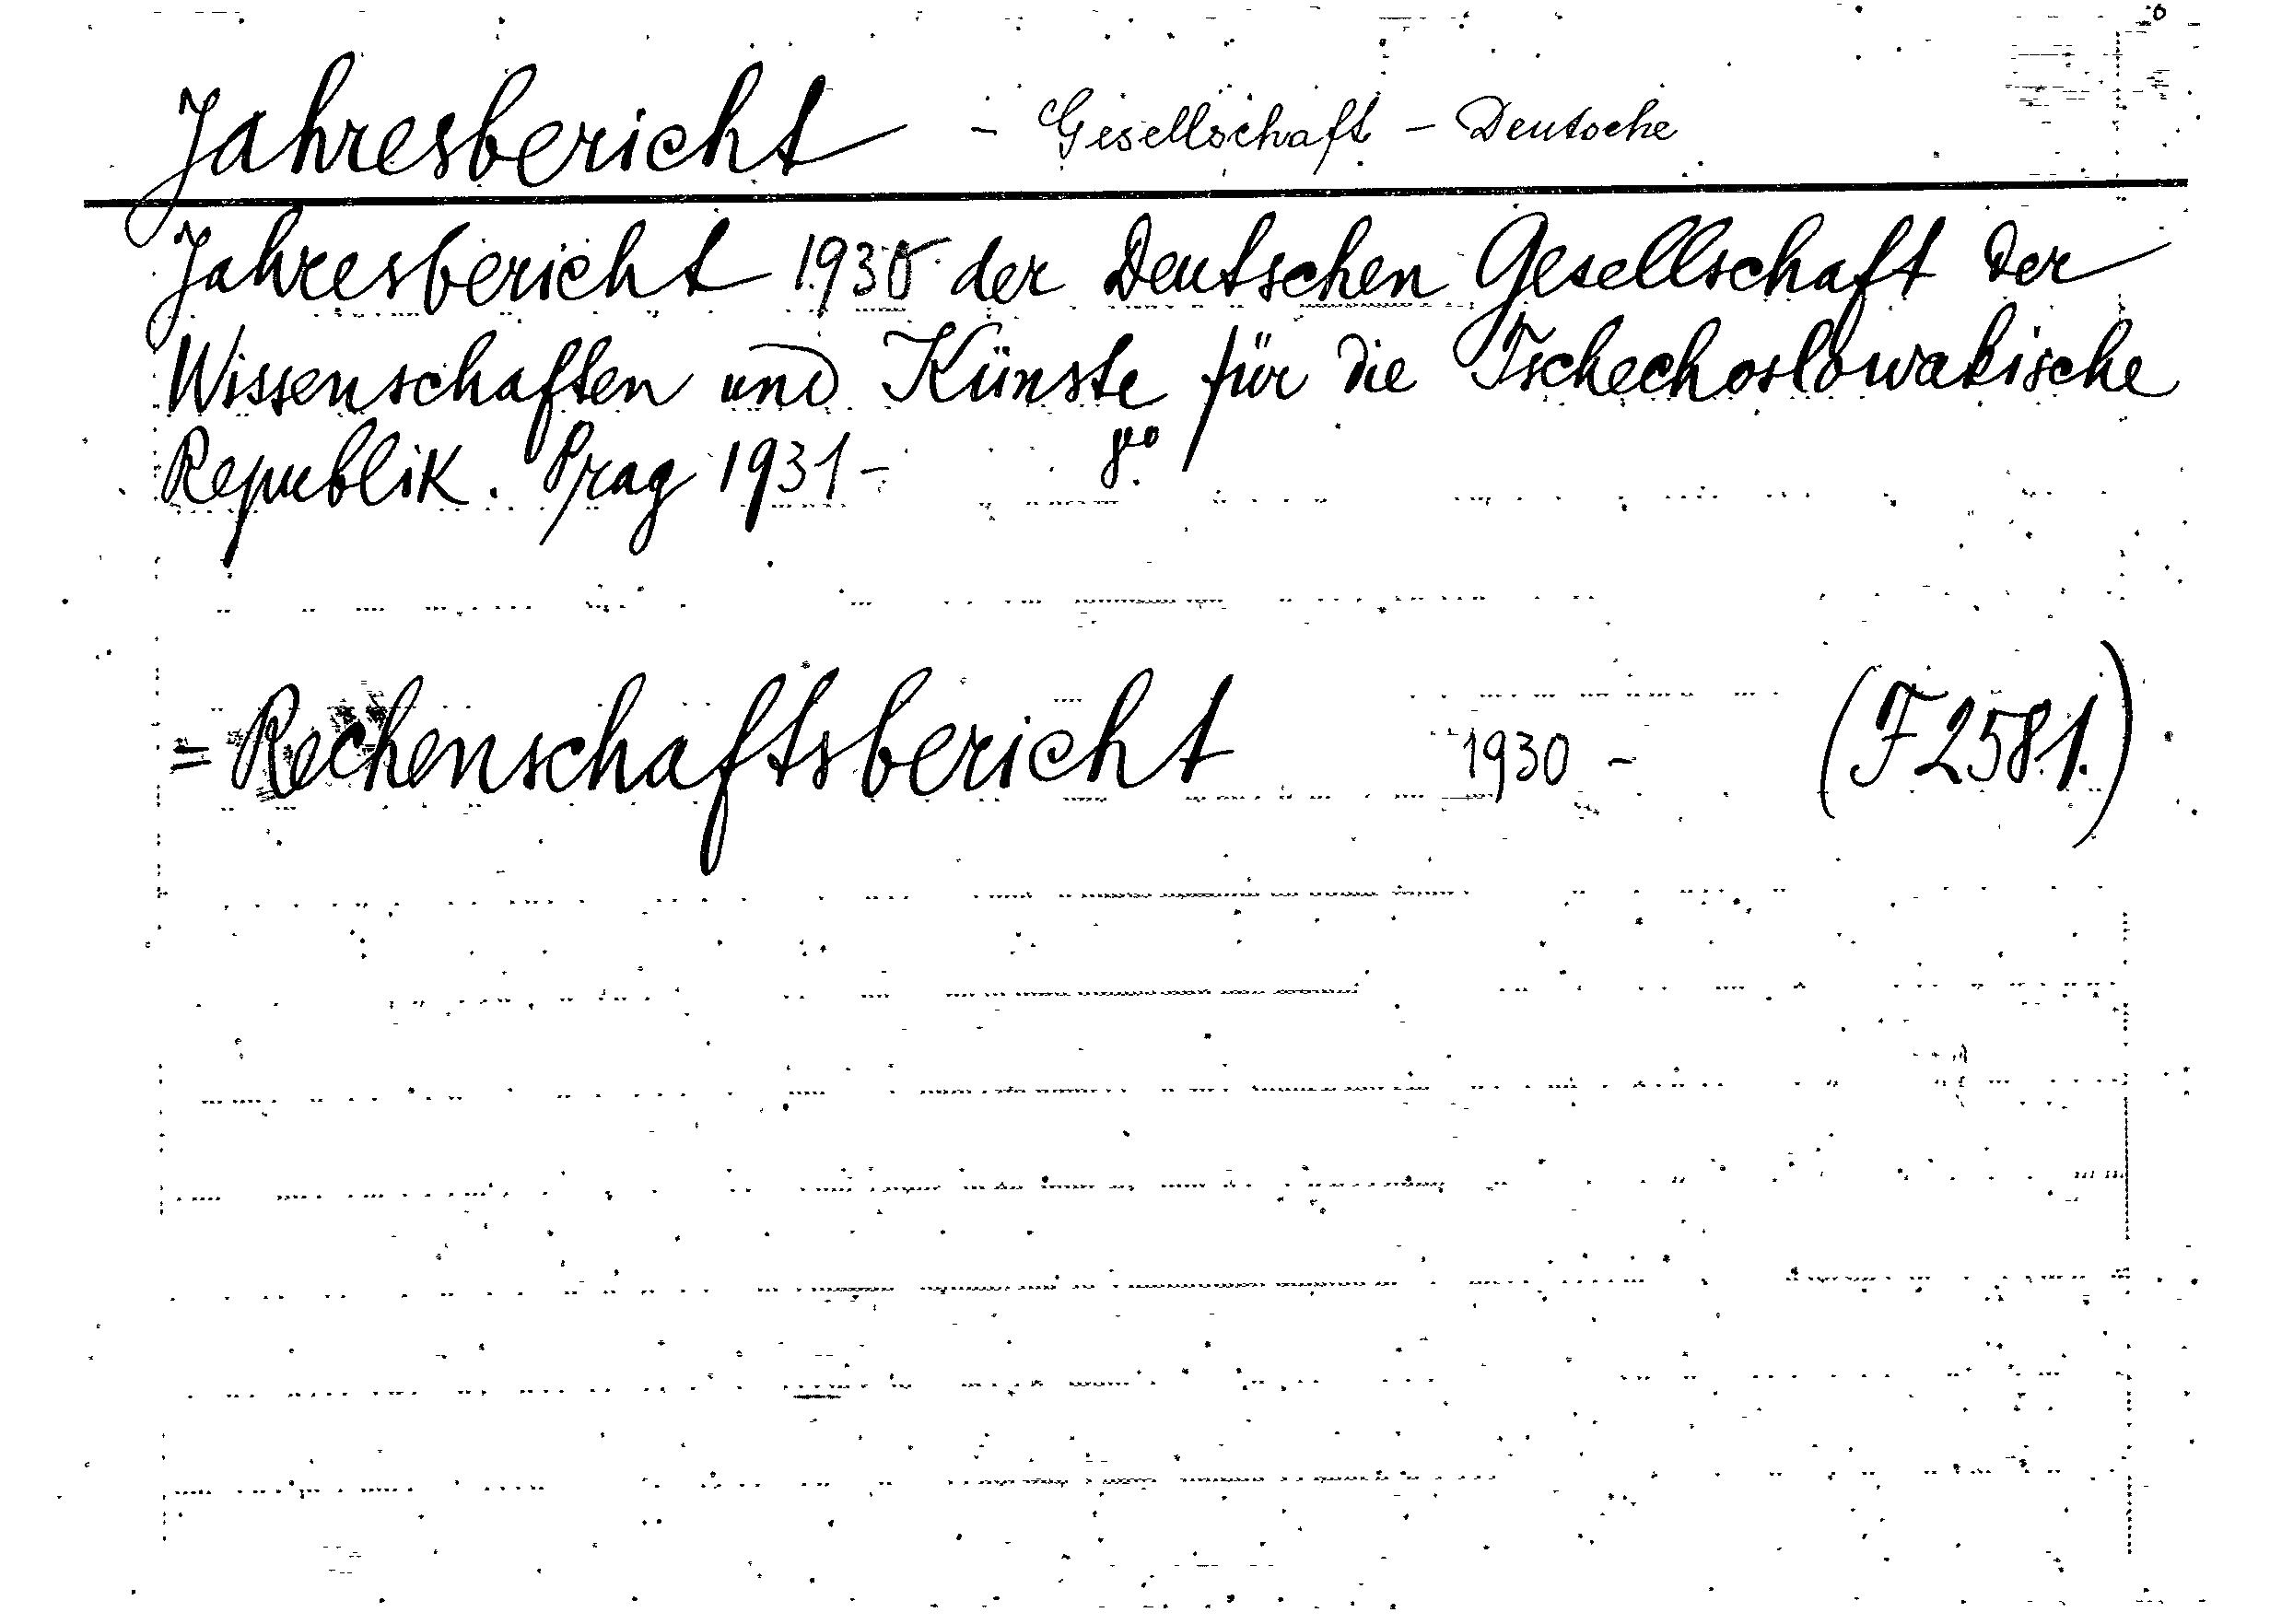 Jahresbericht - Gesellschaft - Deutsche
Jahresbericht 1930 der Deutschen Gesellschaft der
Wissenschaften und Künste für die Tschechoslowakische
Republik. Prag 1931 - 8°.
= Rechenschaftsbericht 1930 - (F 2581.)